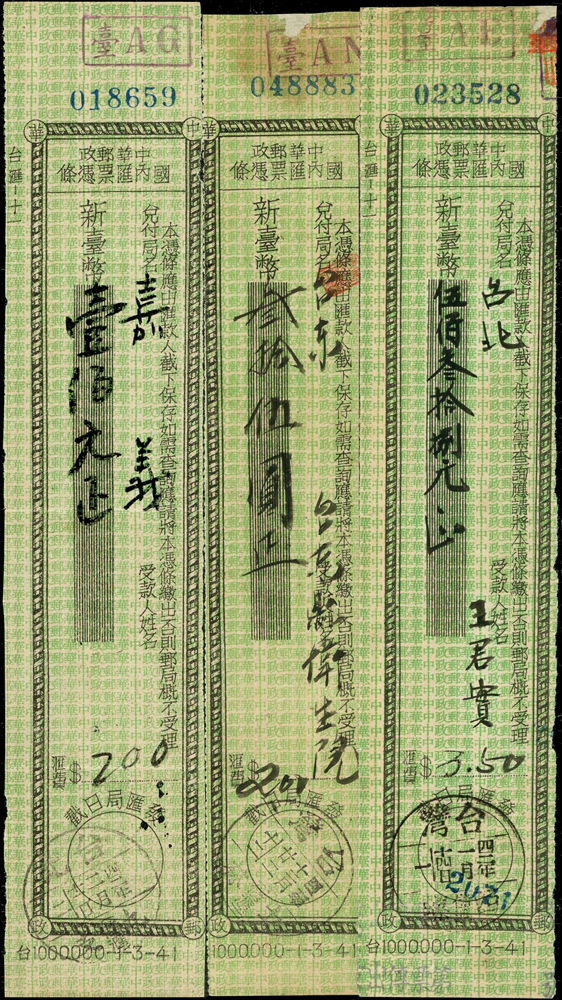 臺AG
018659
中華郵政
國內匯票憑條
台匯-十一
本憑條應由匯款人截下保存如需查詢應請將本憑條繳出否則郵局概不受理
兌付局名
嘉義
新臺幣
壹佰元正
受款人姓名
匯費
$ 2.00
發匯局日戳
台1000000-1-3-41
臺AN
048883
中華郵政
國內匯票憑條
本憑條應由匯款人截下保存如需查詢應請將本憑條繳出否則郵局概不受理
兌付局名
台東
新臺幣
貳拾伍圓正
匯費
$ 2.00
發匯局日戳
1000000-1-3-41
023528
中華郵政
國內匯票憑條
台匯-十一
本憑條應由匯款人截下保存如需查詢應請將本憑條繳出否則郵局概不受理
兌付局名
台北
新臺幣
伍佰叁拾捌元正
受款人姓名
王君實
匯費
$ 3.50
發匯局
台灣
台1000000-1-3-41